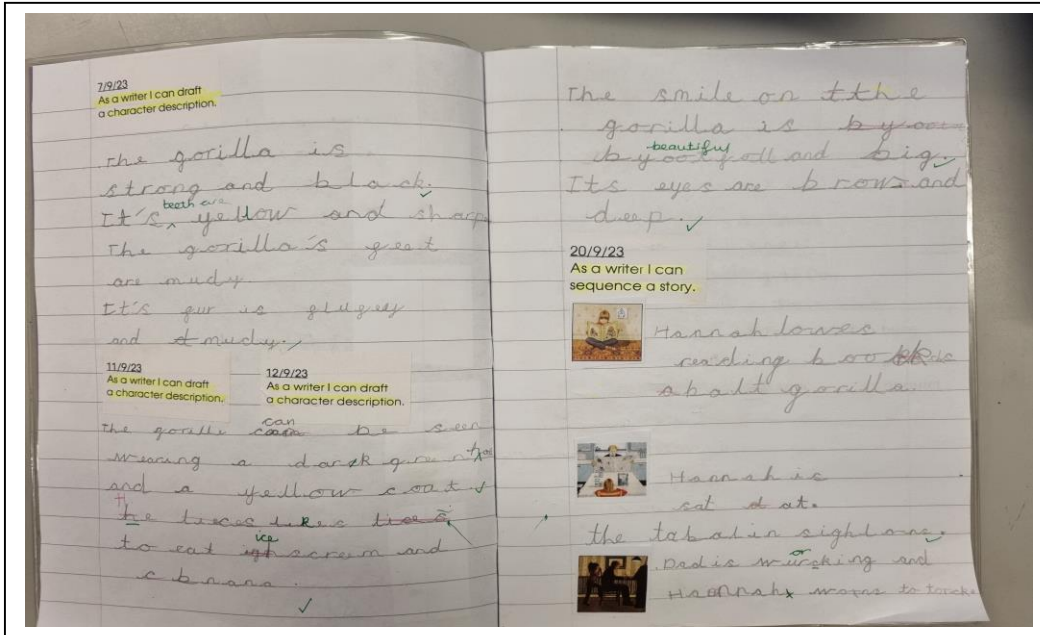 7/9/23
As a writer I can draft
a character description.
The gorilla is
strong and black.
teeth are
It's yellow and sharp
The gorilla's geet
are mudy.
It's gur is glugey
and mudy.
11/9/23
As a writer I can draft
a character description.
12/9/23
As a writer I can draft
a character description.
can
The gorilla be seen
wearing a dark green
and a yellow coat
he likes
ice
to eat scream and
banana.
The smile on tthe
gorilla is
beautiful
and big.
Its eyes are brown and
deep.
20/9/23
As a writer I can
sequence a story.
Hannah loves
reading
about gorilla
Hannah is
sat at.
the tabal in sighlans.
or
Dad is wurcking and
Hannah wons to torck.